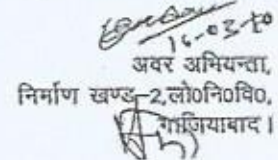 16-03-20
अवर अभियन्ता,
निर्माण खण्ड-2,लो०नि०वि०,
गाजियाबाद।